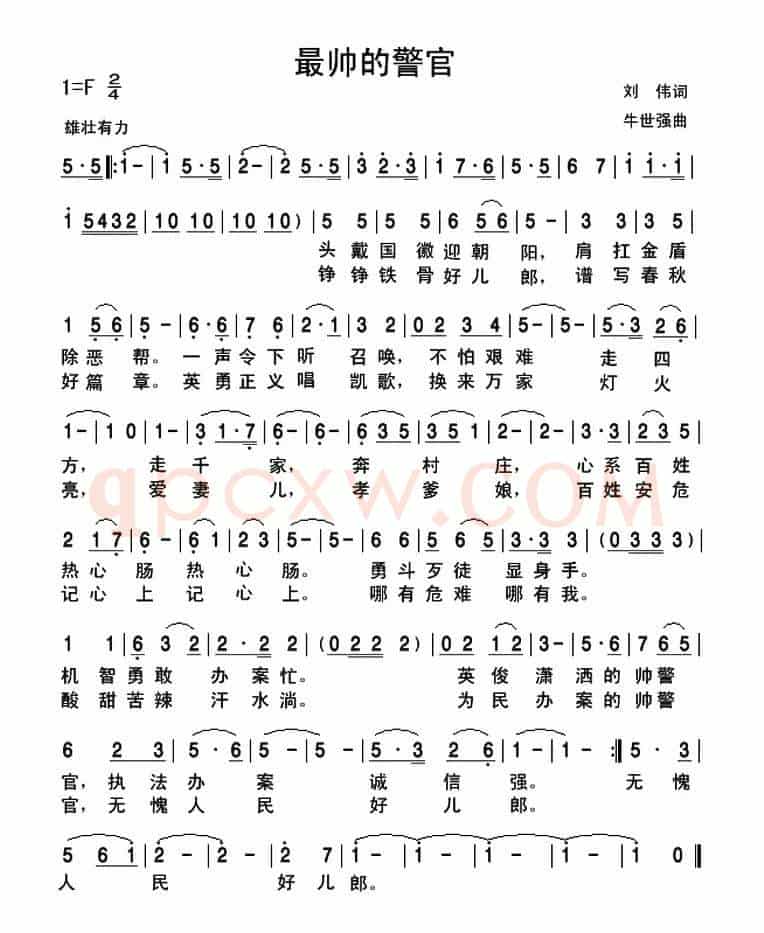 最帅的警官
1=F 2/4
刘 伟词
雄壮有力
牛世强曲
5·5‖:1-|1 5·5|2-|2 5·5|3 2·3|1 7·6|5·5|6 7|1 1·1|
1 5432|10 10|10 10|10 10)|5 5|5 5|6 56|5-|3 3|3 5|
头戴国徽迎朝阳,肩扛金盾
铮铮铁骨好儿郎,谱写春秋
1 56|5-|6·6|7 6|2·1|3 2|02 34|5-|5-|5·3 26|
除恶帮。一声令下听召唤,不怕艰难走四
好篇章。英勇正义唱凯歌,换来万家灯火
1-|10|1-|3 1·7|6-|6-|6 35|1 35|2-|2-|3·3|2 35|
方,走千家,奔村庄,心系百姓
亮,爱妻儿,孝爹娘,百姓安危
qpcxw.COM
2 17|6-|6-|12 3|5-|5-|6·6|5 65|3·3 3|(033 3)|
热心肠热心肠。勇斗歹徒显身手。
记心上记心上。哪有危难哪有我。
1 1|6 3 2|2·2 2|(022 2)|02 12|3-|5·6|7 65|
机智勇敢办案忙。英俊潇洒的帅警
酸甜苦辣汗水淌。为民办案的帅警
6 2 3|5·6|5-|5·3|2 6|1-|1-:‖5·5|5 3|
官,执法办案诚信强。无愧
官,无愧人民好儿郎。
5 61|2-|2-|2 7|1-|1-|1-|1 0‖
人民好儿郎。